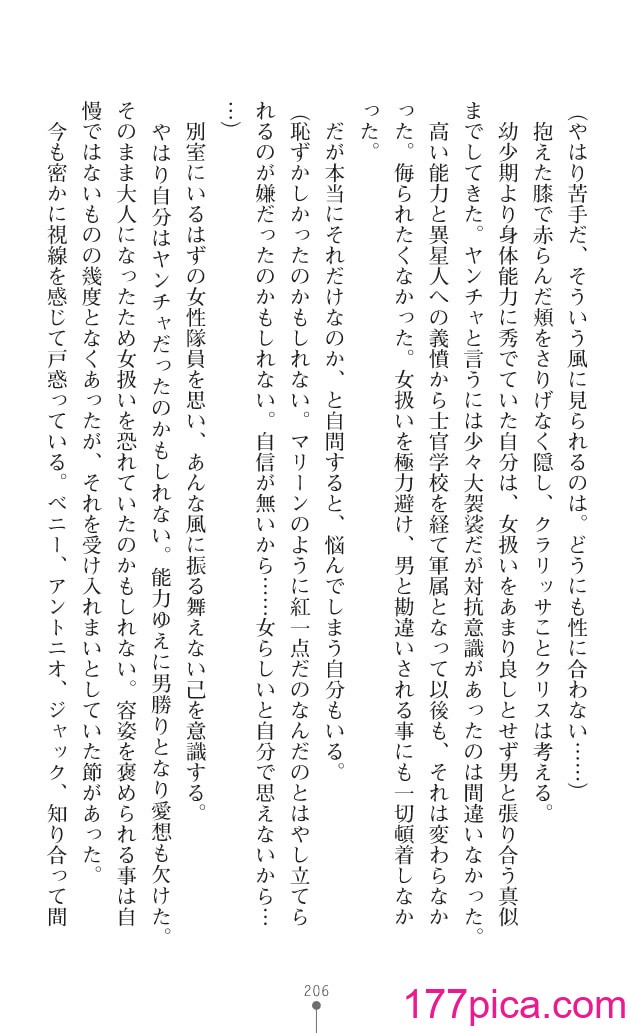 (やはり苦手だ、そういう風に見られるのは。どうにも性に合わない……)
抱えた膝で赤らんだ頬をさりげなく隠し、クラリッサことクリスは考える。
幼少期より身体能力に秀でていた自分は、女扱いをあまり良しとせず男と張り合う真似
までしてきた。ヤンチャと言うには少々大袈裟だが対抗意識があったのは間違いなかった。
高い能力と異星人への義憤から士官学校を経て軍属となって以後も、それは変わらなか
った。侮られたくなかった。女扱いを極力避け、男と勘違いされる事にも一切頓着しなか
った。
だが本当にそれだけなのか、と自問すると、悩んでしまう自分もいる。
(恥ずかしかったのかもしれない。マリーンのように紅一点だのなんだのとはやし立てら
れるのが嫌だったのかもしれない。自信が無いから……女らしいと自分で思えないから…
…)
別室にいるはずの女性隊員を思い、あんな風に振る舞えない己を意識する。
やはり自分はヤンチャだったのかもしれない。能力ゆえに男勝りとなり愛想も欠けた。
そのまま大人になったため女扱いを恐れていたのかもしれない。容姿を褒められる事は自
慢ではないものの幾度となくあったが、それを受け入れまいとしていた節があった。
今も密かに視線を感じて戸惑っている。ベニー、アントニオ、ジャック、知り合って間
206
177pica.com